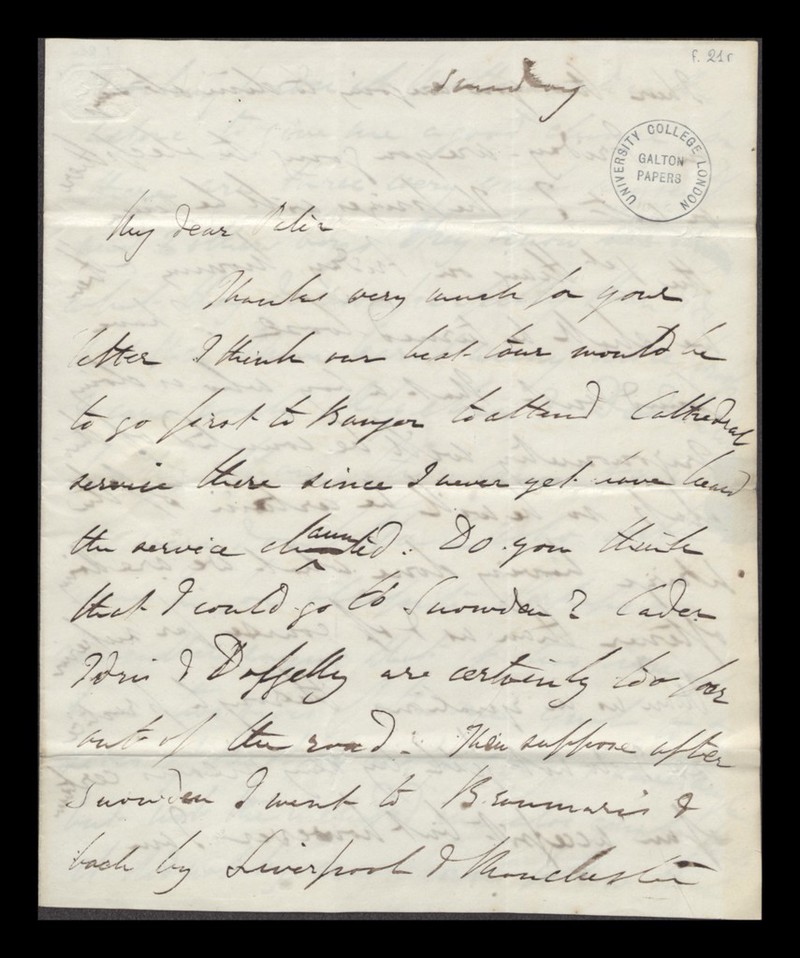 f. 21r
Sunday
UNIVERSITY COLLEGE LONDON
GALTON
PAPERS
My dear Pater
Thanks very much for your
letter I think our best tour would be
to go first to Bangor to attend Cathedral
service there since I never yet have heard
the service chaunted. Do you think
that I could go to Snowden? Cader
Idris & Dolgelly are certainly too far
out of the road. Then suppose after
Snowden I went to Beaumaris &
back by Liverpool & Manchester